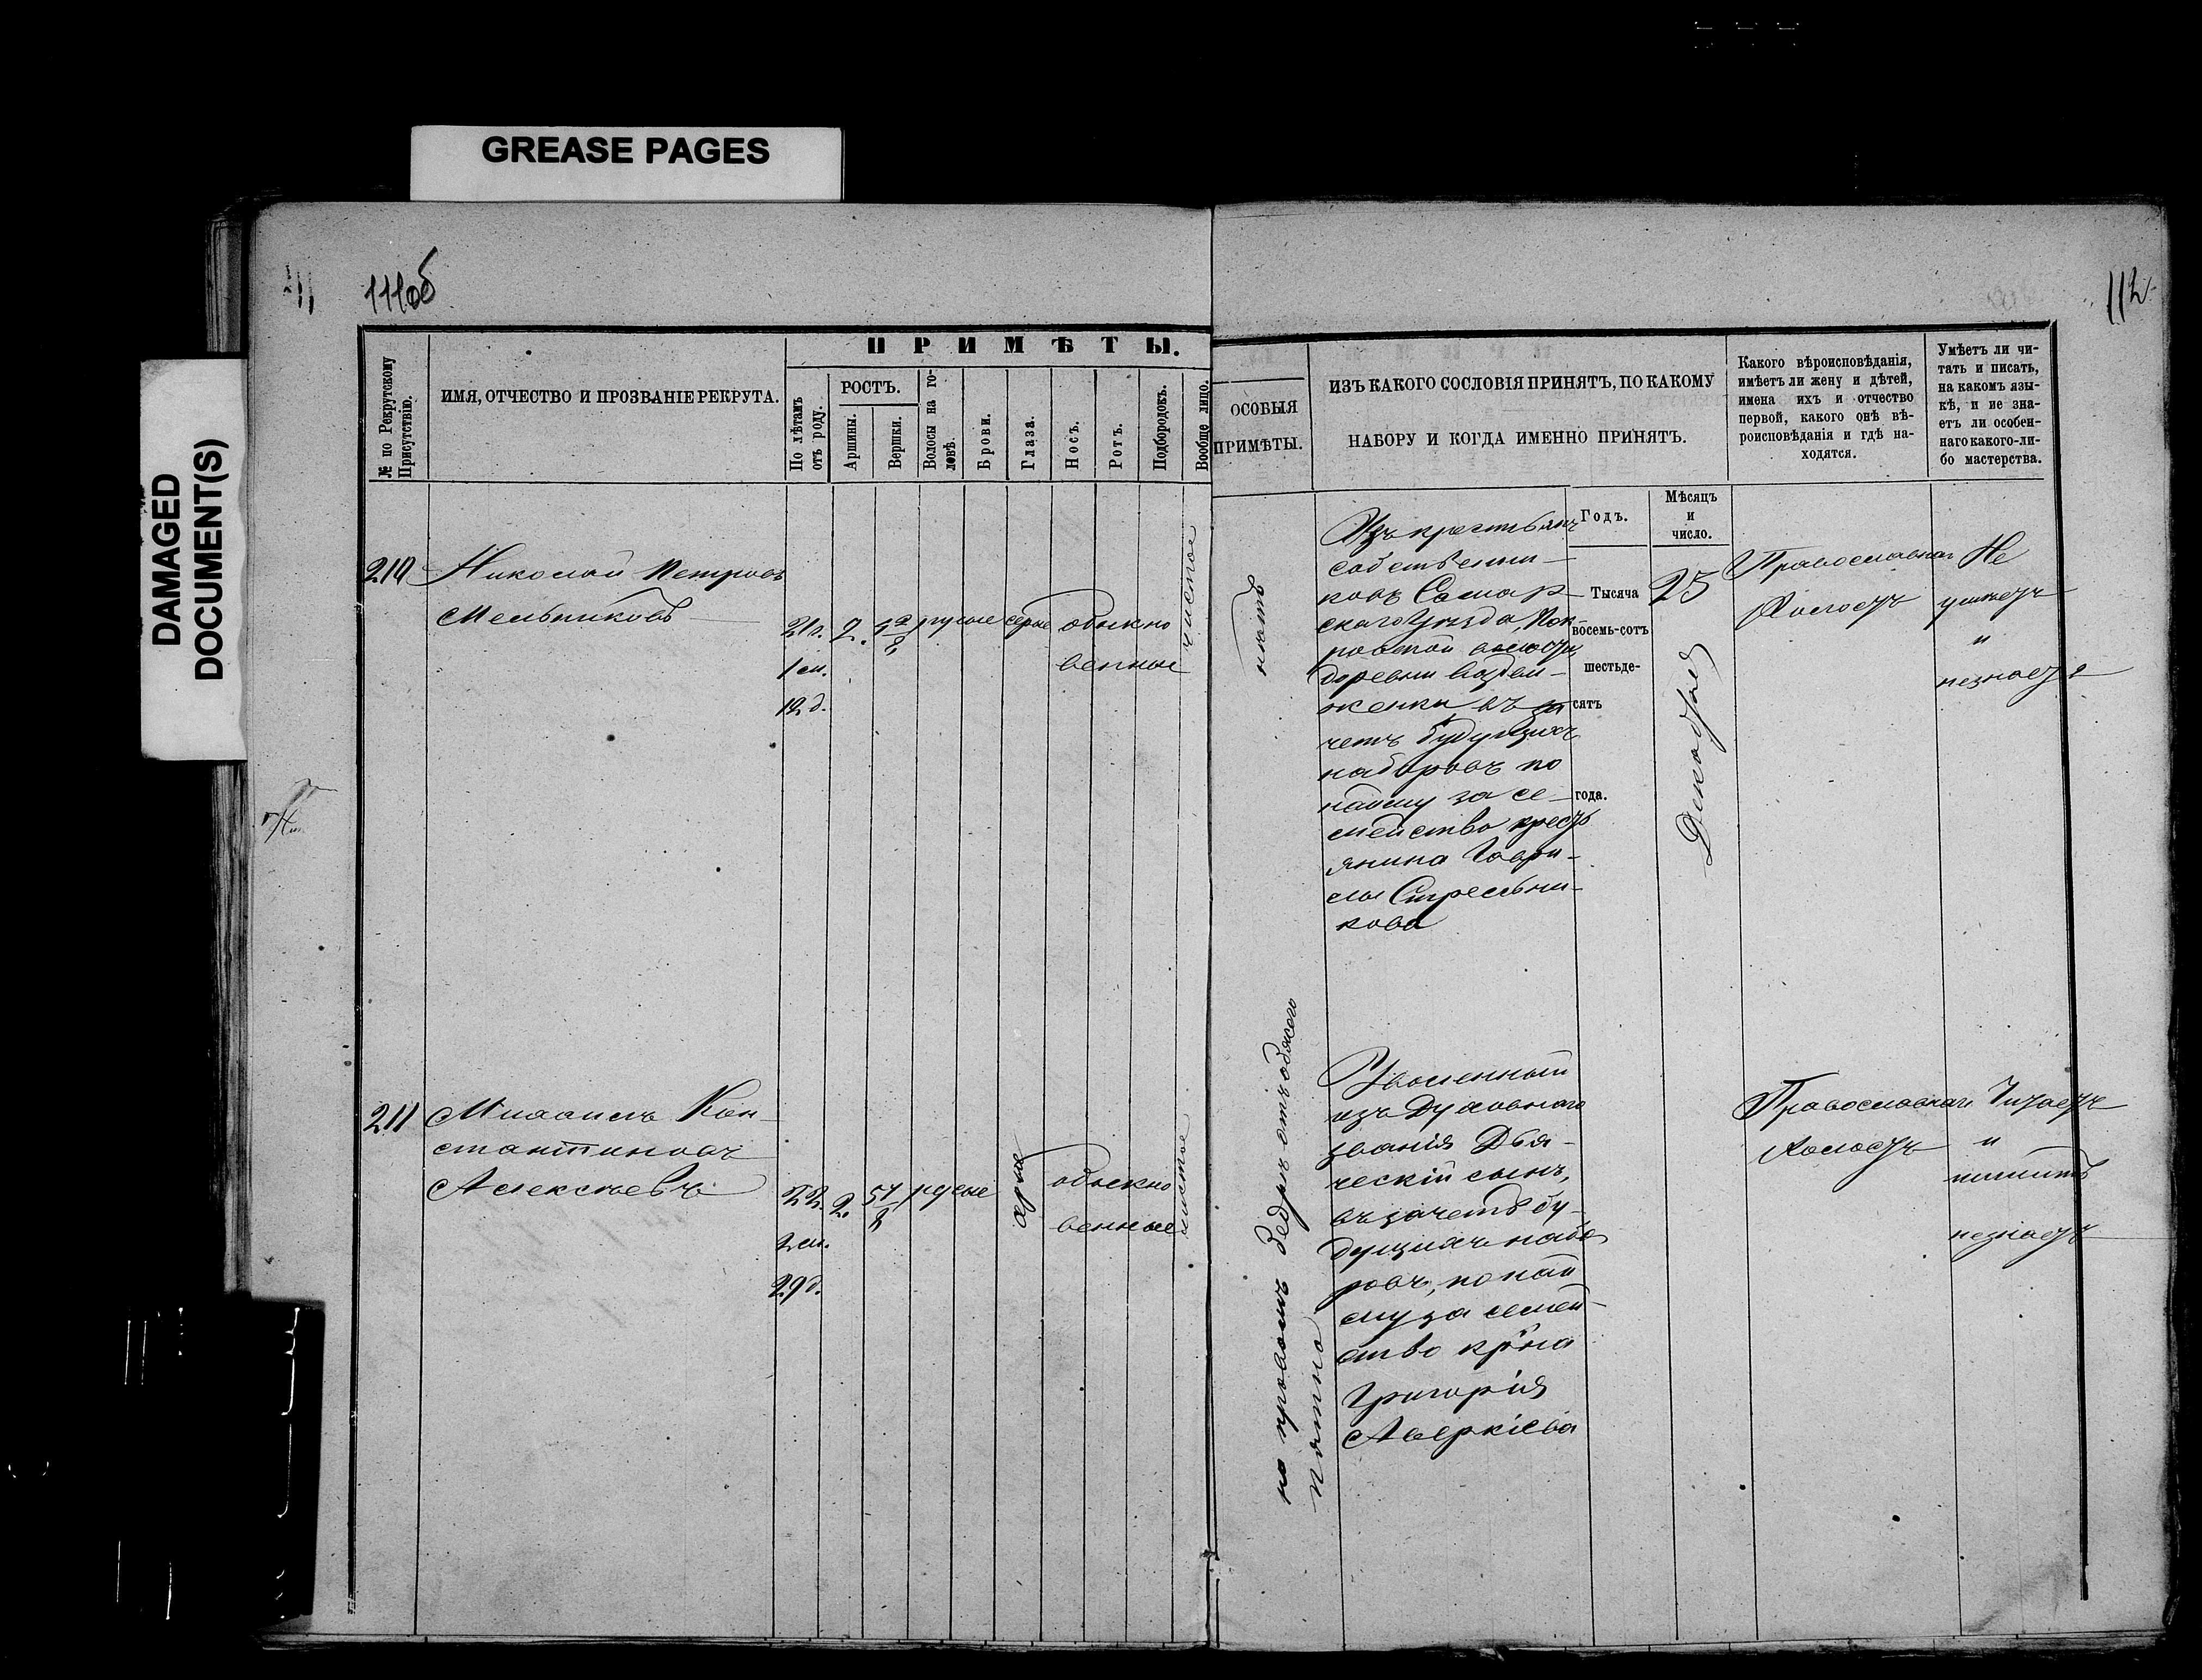 GREASE PAGES
DAMAGED
DOCUMENT(S)
111об
112
№ по Рекрутскому
Присутствію.
ИМЯ, ОТЧЕСТВО И ПРОЗВАНІЕ РЕКРУТА.
ПРИМѢТЫ.
По лѣтамъ
отъ роду.
РОСТЪ.
Аршины.
Вершки.
Волосы на го-
ловѣ.
Брови.
Глаза.
Носъ.
Ротъ.
Подбородокъ.
Вообще лицо.
ОСОБЫЯ
ПРИМѢТЫ.
ИЗЪ КАКОГО СОСЛОВІЯ ПРИНЯТЪ, ПО КАКОМУ
НАБОРУ И КОГДА ИМЕННО ПРИНЯТЪ.
Какого вѣроисповѣданія,
имѣетъ ли жену и дѣтей,
имена ихъ и отчество
первой, какого онѣ вѣ-
роисповѣданія и гдѣ на-
ходятся.
Умѣетъ ли чи-
тать и писать,
на какомъ язы-
кѣ, и не зна-
етъ ли особен-
наго какого-ли-
бо мастерства.
210
Николай Петровъ
Мельниковъ
21л.
1 м.
12 д.
2.
русые
серые
обыкно
венные
чистое
нѣтъ
Изъ крестьянъ
собственни-
ковъ Самар
скаго Уѣзда, Пок-
ровской волости
деревни Воздви-
женки въ за
четъ будущихъ
наборовъ по
найму за се-
мейство крест
янина Гаври-
лы Стрельни-
кова
Годъ.
Тысяча
восемь-сотъ
шестьде-
сятъ
года.
Мѣсяцъ
и
число.
23
Декабря
Православнаго
Холостъ
Не
умѣетъ
и
незнаетъ
211
Михаилъ Кон-
стантиновъ
Алексѣевъ
22.
2 м.
29 д.
2.
русые
серые
обыкно
венные
чистое
на правомъ бедрѣ отъ
пятно
Уволенный
изъ Духовнаго
званія Дья-
ческій сынъ,
въ зачетъ бу-
дущихъ набо
ровъ, по най
му за семей-
ство кр-на
Григорія
Аверкіева
Православнаго
Холостъ
Читаетъ
и
пишетъ
незнаетъ